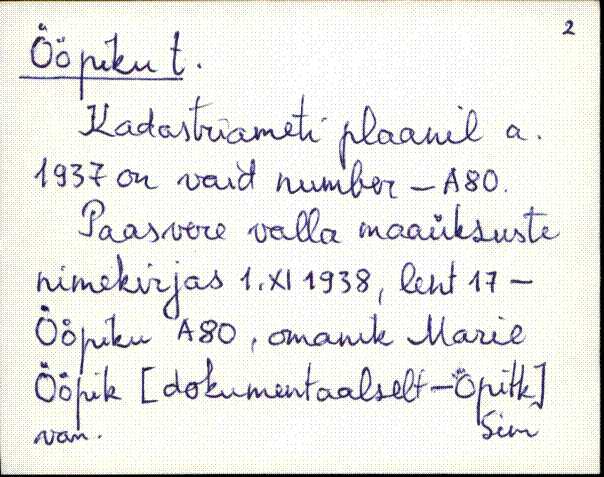 2
Ööpiku t.
Kadastriameti plaanil a.
1937 on vaid number – A80.
Paasvere valla maaüksuste
nimekirjas 1. XI 1938, leht 17 –
Ööpiku A80, omanik Marie
Ööpik [dokumentaalselt – Öpitk]
van. Sim